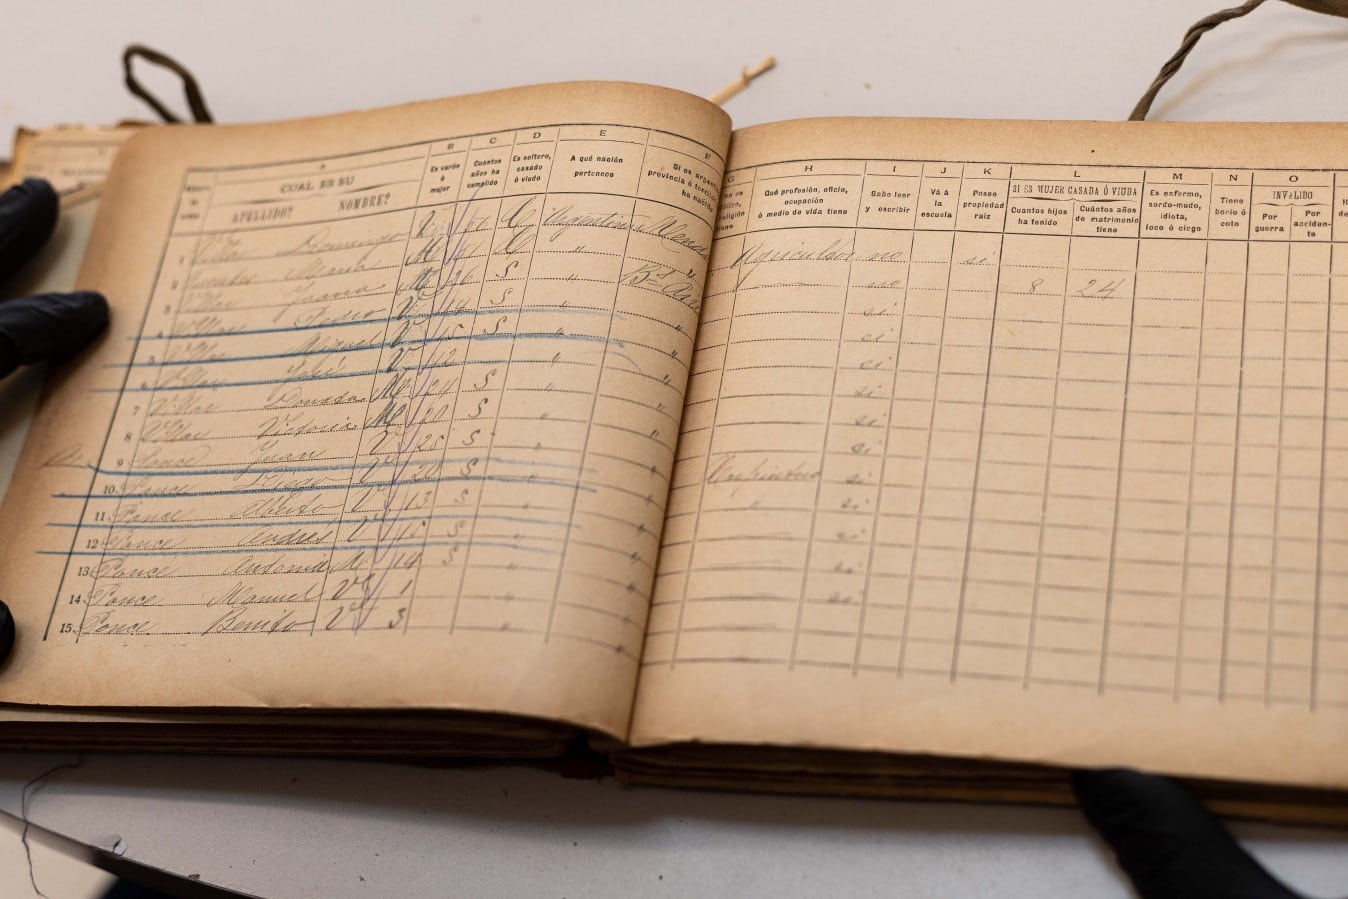 A B C D E F
CUAL ES SU
APELLIDO? NOMBRE?
Es varón ó mujer
Cuantos años ha cumplido
Es soltero, casado ó viudo
A qué nación pertenece
Si es
provincia ó
ha nacido
G H I J K L M N O
Qué profesión, oficio, ocupación ó medio de vida tiene
Sabe leer y escribir
Vá á la escuela
Posee propiedad raiz
SI ES MUJER CASADA Ó VIUDA
Cuantos hijos ha tenido
Cuántos años de matrimonio tiene
Es enfermo, sordo-mudo, idiota, loco ó ciego
Tiene bocio ó coto
INVALIDO
Por guerra
Por accidente
1 Villar Domingo V. C Argentina Agricultor no si
2 Maria M C " no 8 24
3 Villar Juana M 26 S " Bs. si
4 Villar Pedro V 14 S " " si
5 Villar Miguel V 15 S " " si
6 Villar José V 12 " " si
7 Villar M 24 S " " si
8 Villar Victoria M 20 S " " si
9 Ponce Juan V 25 S " " Carpintero si
10 Ponce Diego V 20 S " " si
11 Ponce Alberto V 13 S " "
12 Ponce Andrés V 15 S " "
13 Ponce Antonia M 14 S " "
14 Ponce Manuel V 1 " "
15 Ponce Benito V 3 " "